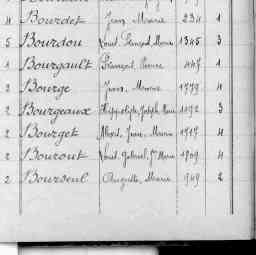 4 Bourdet Jean, Marie 234 1
5 Bourdou Louis, Marie 1345 3
1 Bourgault Pierre 447 1
2 Bourge Jean, Marie 1779 4
2 Bourgeaux Hippolyte, Joseph, Marie 1192 3
2 Bourget Albert, Jean, Marie 1717 4
2 Bouront Louis, Gabriel, Marie 1709 4
2 Bourseul Auguste, Marie 949 2